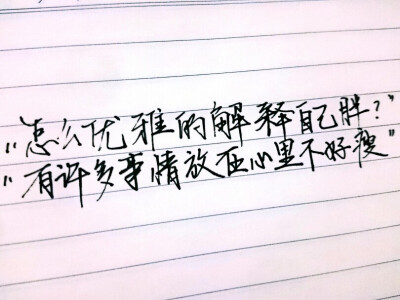 "怎么优雅的解释自己胖?"
"有许多事情放在心里不好瘦"